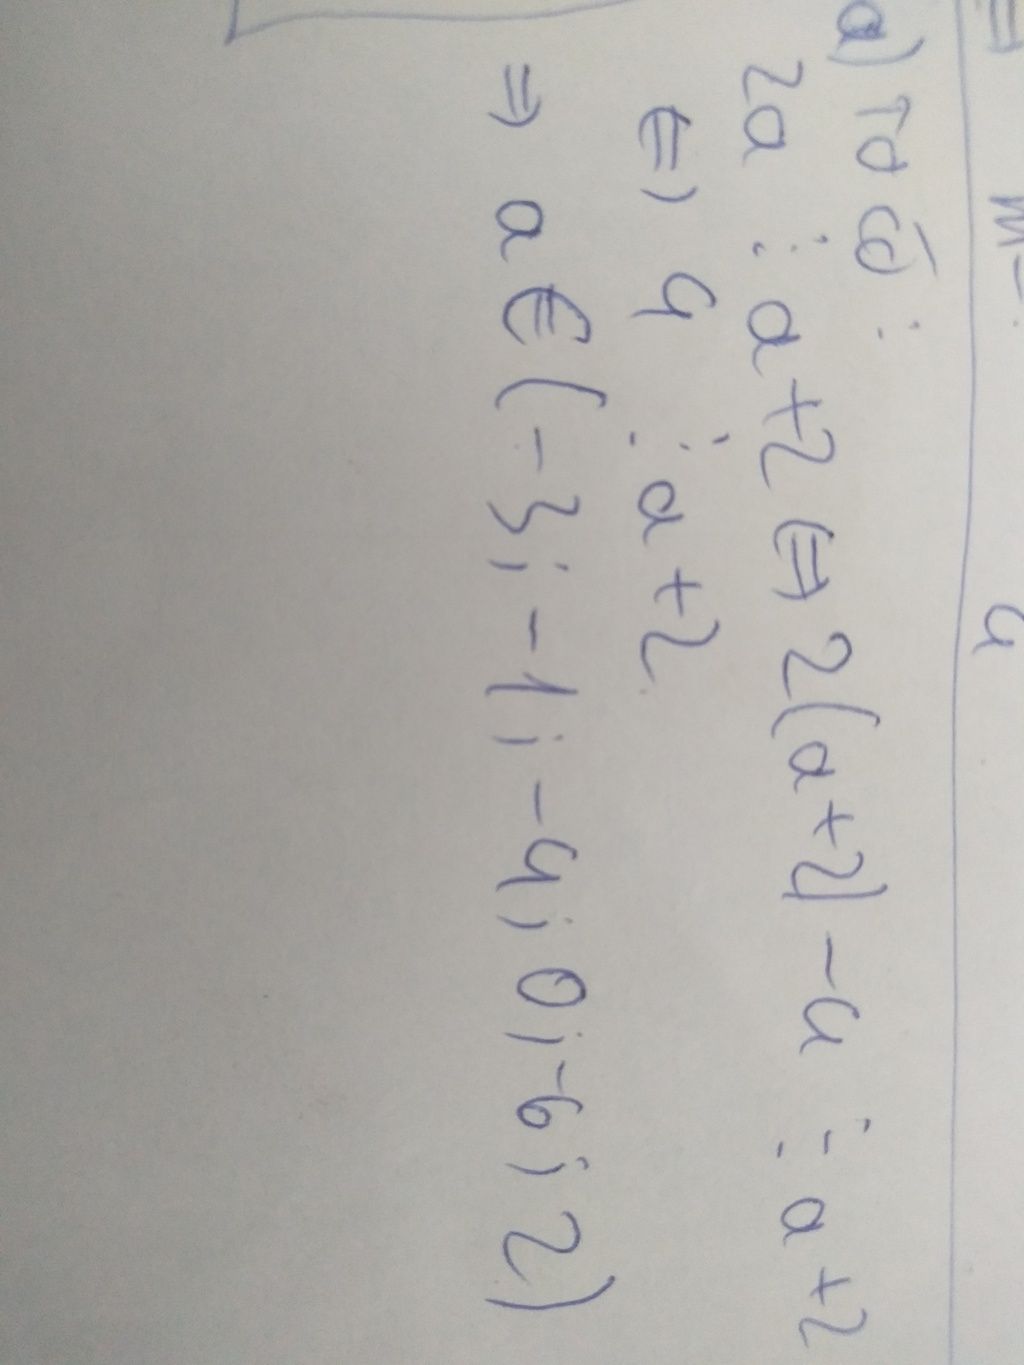 a) Ta có :
2a ⋮ a+2 ⇔ 2(a+2) - 4 ⋮ a+2
⇔ 4 ⋮ a+2
⇒ a ∈ (-3; -1; -4; 0; -6; 2)